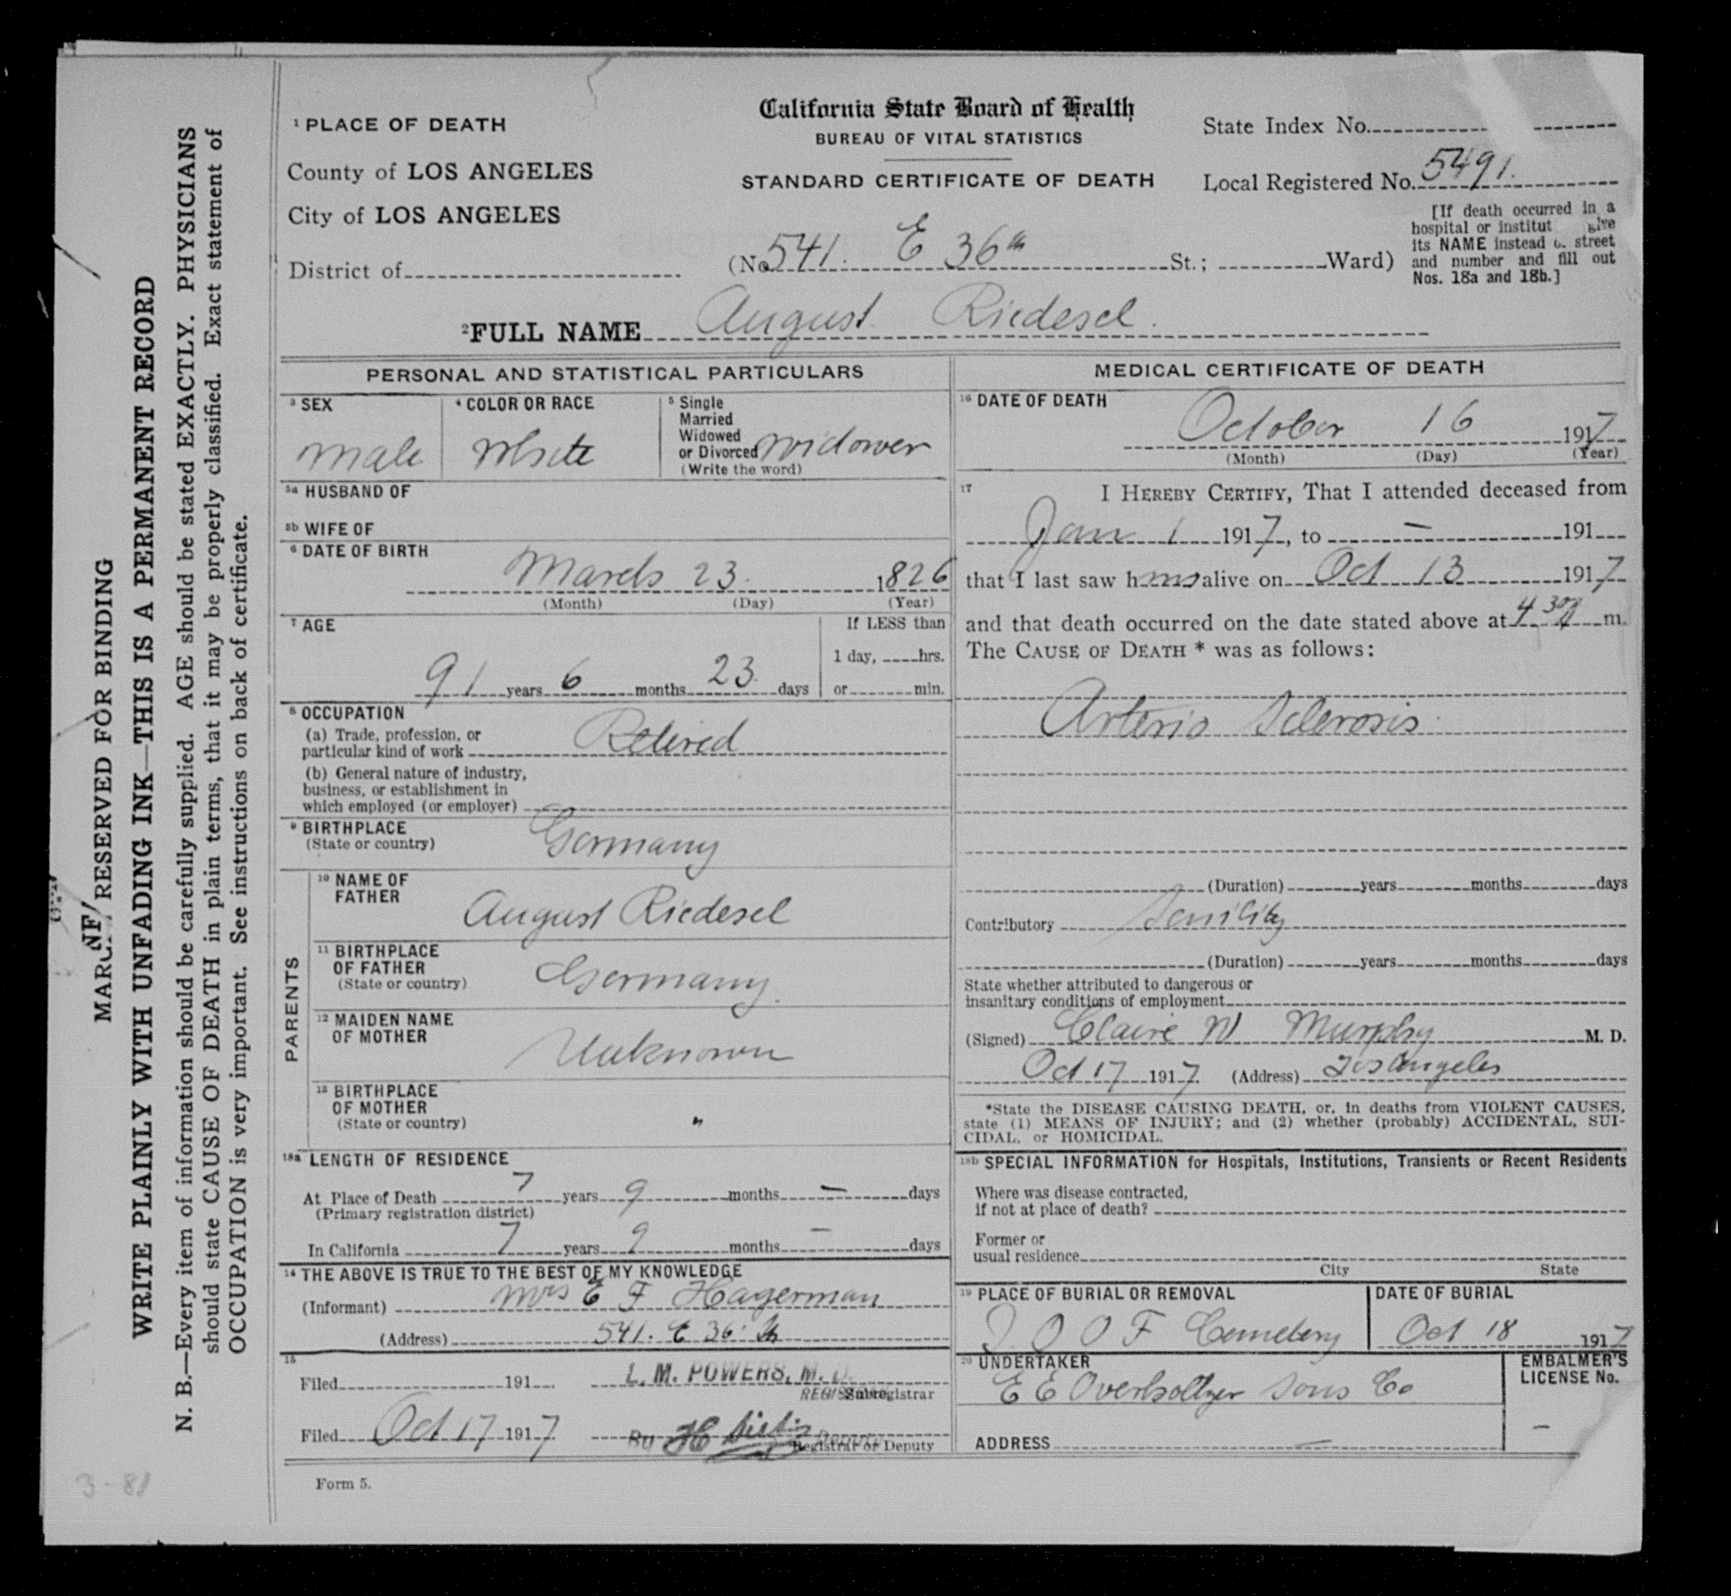 California State Board of Health
BUREAU OF VITAL STATISTICS
STANDARD CERTIFICATE OF DEATH
1 PLACE OF DEATH
County of LOS ANGELES
City of LOS ANGELES
District of
(No 541. E 36th St.; Ward)
State Index No.
Local Registered No. 5491.
[If death occurred in a
hospital or institut give
its NAME instead o. street
and number and fill out
Nos. 18a and 18b.]
2 FULL NAME August Riedesel.
PERSONAL AND STATISTICAL PARTICULARS
3 SEX
male
4 COLOR OR RACE
White
5 Single
Married
Widowed
or Divorced widower
(Write the word)
5a HUSBAND OF
5b WIFE OF
6 DATE OF BIRTH
March 23. 1826
(Month) (Day) (Year)
7 AGE
91 years 6 months 23 days
If LESS than
1 day, hrs.
or min.
8 OCCUPATION
(a) Trade, profession, or
particular kind of work Retired
(b) General nature of industry,
business, or establishment in
which employed (or employer)
9 BIRTHPLACE
(State or country) Germany
PARENTS
10 NAME OF
FATHER
August Riedesel
11 BIRTHPLACE
OF FATHER
(State or country) Germany.
12 MAIDEN NAME
OF MOTHER
Unknown
13 BIRTHPLACE
OF MOTHER
(State or country) "
18a LENGTH OF RESIDENCE
At Place of Death 7 years 9 months – days
(Primary registration district)
In California 7 years 9 months – days
14 THE ABOVE IS TRUE TO THE BEST OF MY KNOWLEDGE
(Informant) Mrs E F Hagerman
(Address) 541. E 36. th
15
Filed 191
L. M. POWERS, M. D.
Subregistrar
Filed Oct 17 1917
By H
Registrar or Deputy
Form 5.
MEDICAL CERTIFICATE OF DEATH
16 DATE OF DEATH
October 16 1917
(Month) (Day) (Year)
17 I HEREBY CERTIFY, That I attended deceased from
Jan 1 1917, to – 191
that I last saw him alive on Oct 13 1917
and that death occurred on the date stated above at 4 30 m.
The CAUSE OF DEATH * was as follows:
Arterio Sclerosis
(Duration) years months days
Contributory Senility
(Duration) years months days
State whether attributed to dangerous or
insanitary conditions of employment
(Signed) Claire W Murphy M. D.
Oct 17 1917. (Address) Los Angeles
*State the DISEASE CAUSING DEATH, or, in deaths from VIOLENT CAUSES,
state (1) MEANS OF INJURY; and (2) whether (probably) ACCIDENTAL, SUI-
CIDAL, or HOMICIDAL.
18b SPECIAL INFORMATION for Hospitals, Institutions, Transients or Recent Residents
Where was disease contracted,
if not at place of death?
Former or
usual residence
City State
19 PLACE OF BURIAL OR REMOVAL
I O O F Cemetery
DATE OF BURIAL
Oct 18 1917
20 UNDERTAKER
E E Overholtzer Sons Co
ADDRESS –
EMBALMER'S
LICENSE No.
–
RESERVED FOR BINDING
WRITE PLAINLY WITH UNFADING INK—THIS IS A PERMANENT RECORD
N. B.—Every item of information should be carefully supplied. AGE should be stated EXACTLY. PHYSICIANS
should state CAUSE OF DEATH in plain terms, that it may be properly classified. Exact statement of
OCCUPATION is very important. See instructions on back of certificate.
3-81